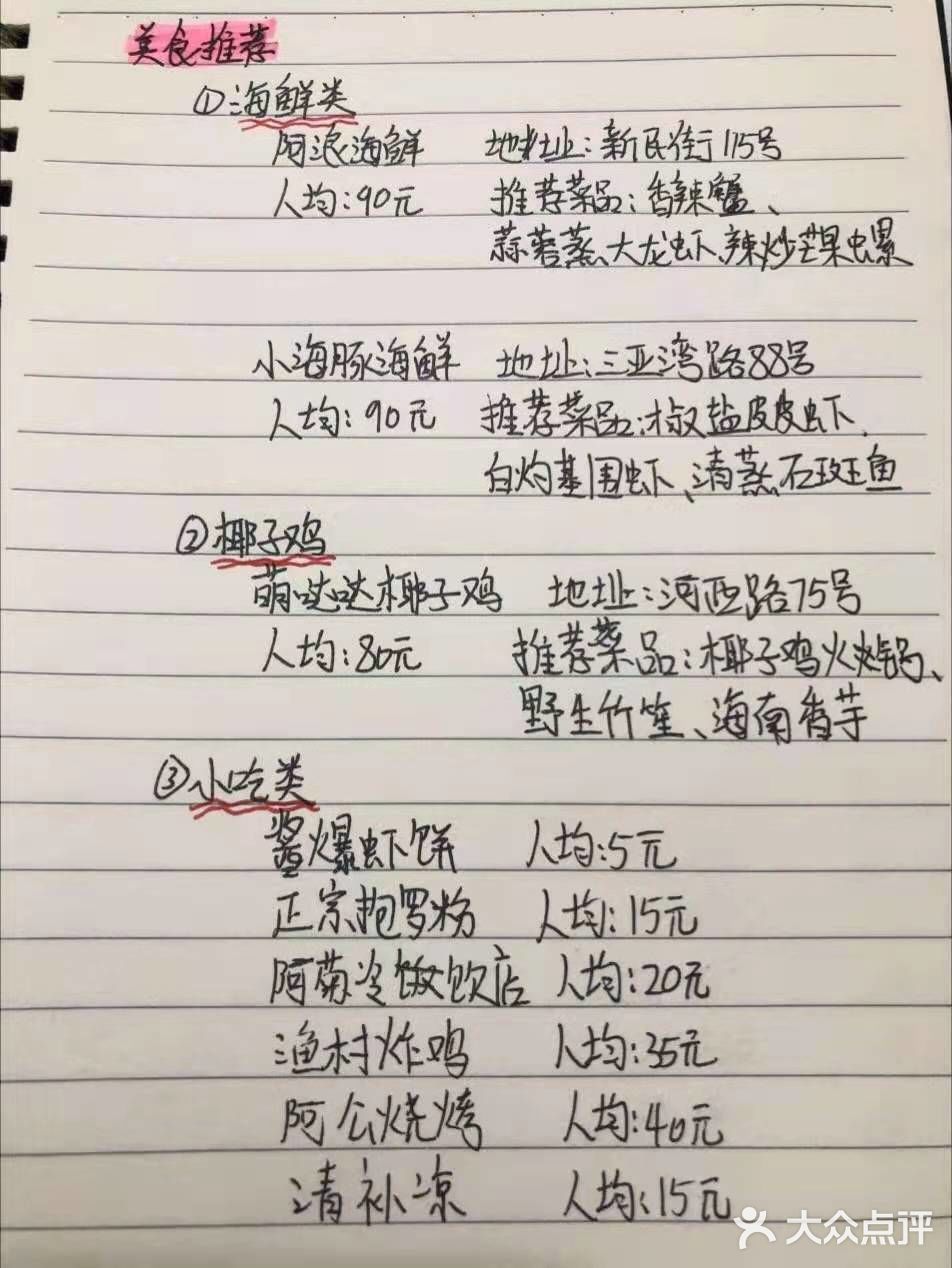 美食推荐
①海鲜类
阿浪海鲜 地址:新民街115号
人均:90元 推荐菜品:香辣蟹、
蒜蓉蒸、大龙虾、辣炒芒果螺
小海豚海鲜 地址:三亚湾路88号
人均:90元 推荐菜品:椒盐皮皮虾、
白灼基围虾、清蒸石斑鱼
②椰子鸡
萌哒哒椰子鸡 地址:河西路75号
人均:80元 推荐菜品:椰子鸡火锅、
野生竹笙、海南香芋
③小吃类
酱爆虾饼 人均:5元
正宗抱罗粉 人均:15元
阿菊冷饭饮店 人均:20元
渔村炸鸡 人均:35元
阿公烧烤 人均:40元
清补凉 人均:15元
大众点评